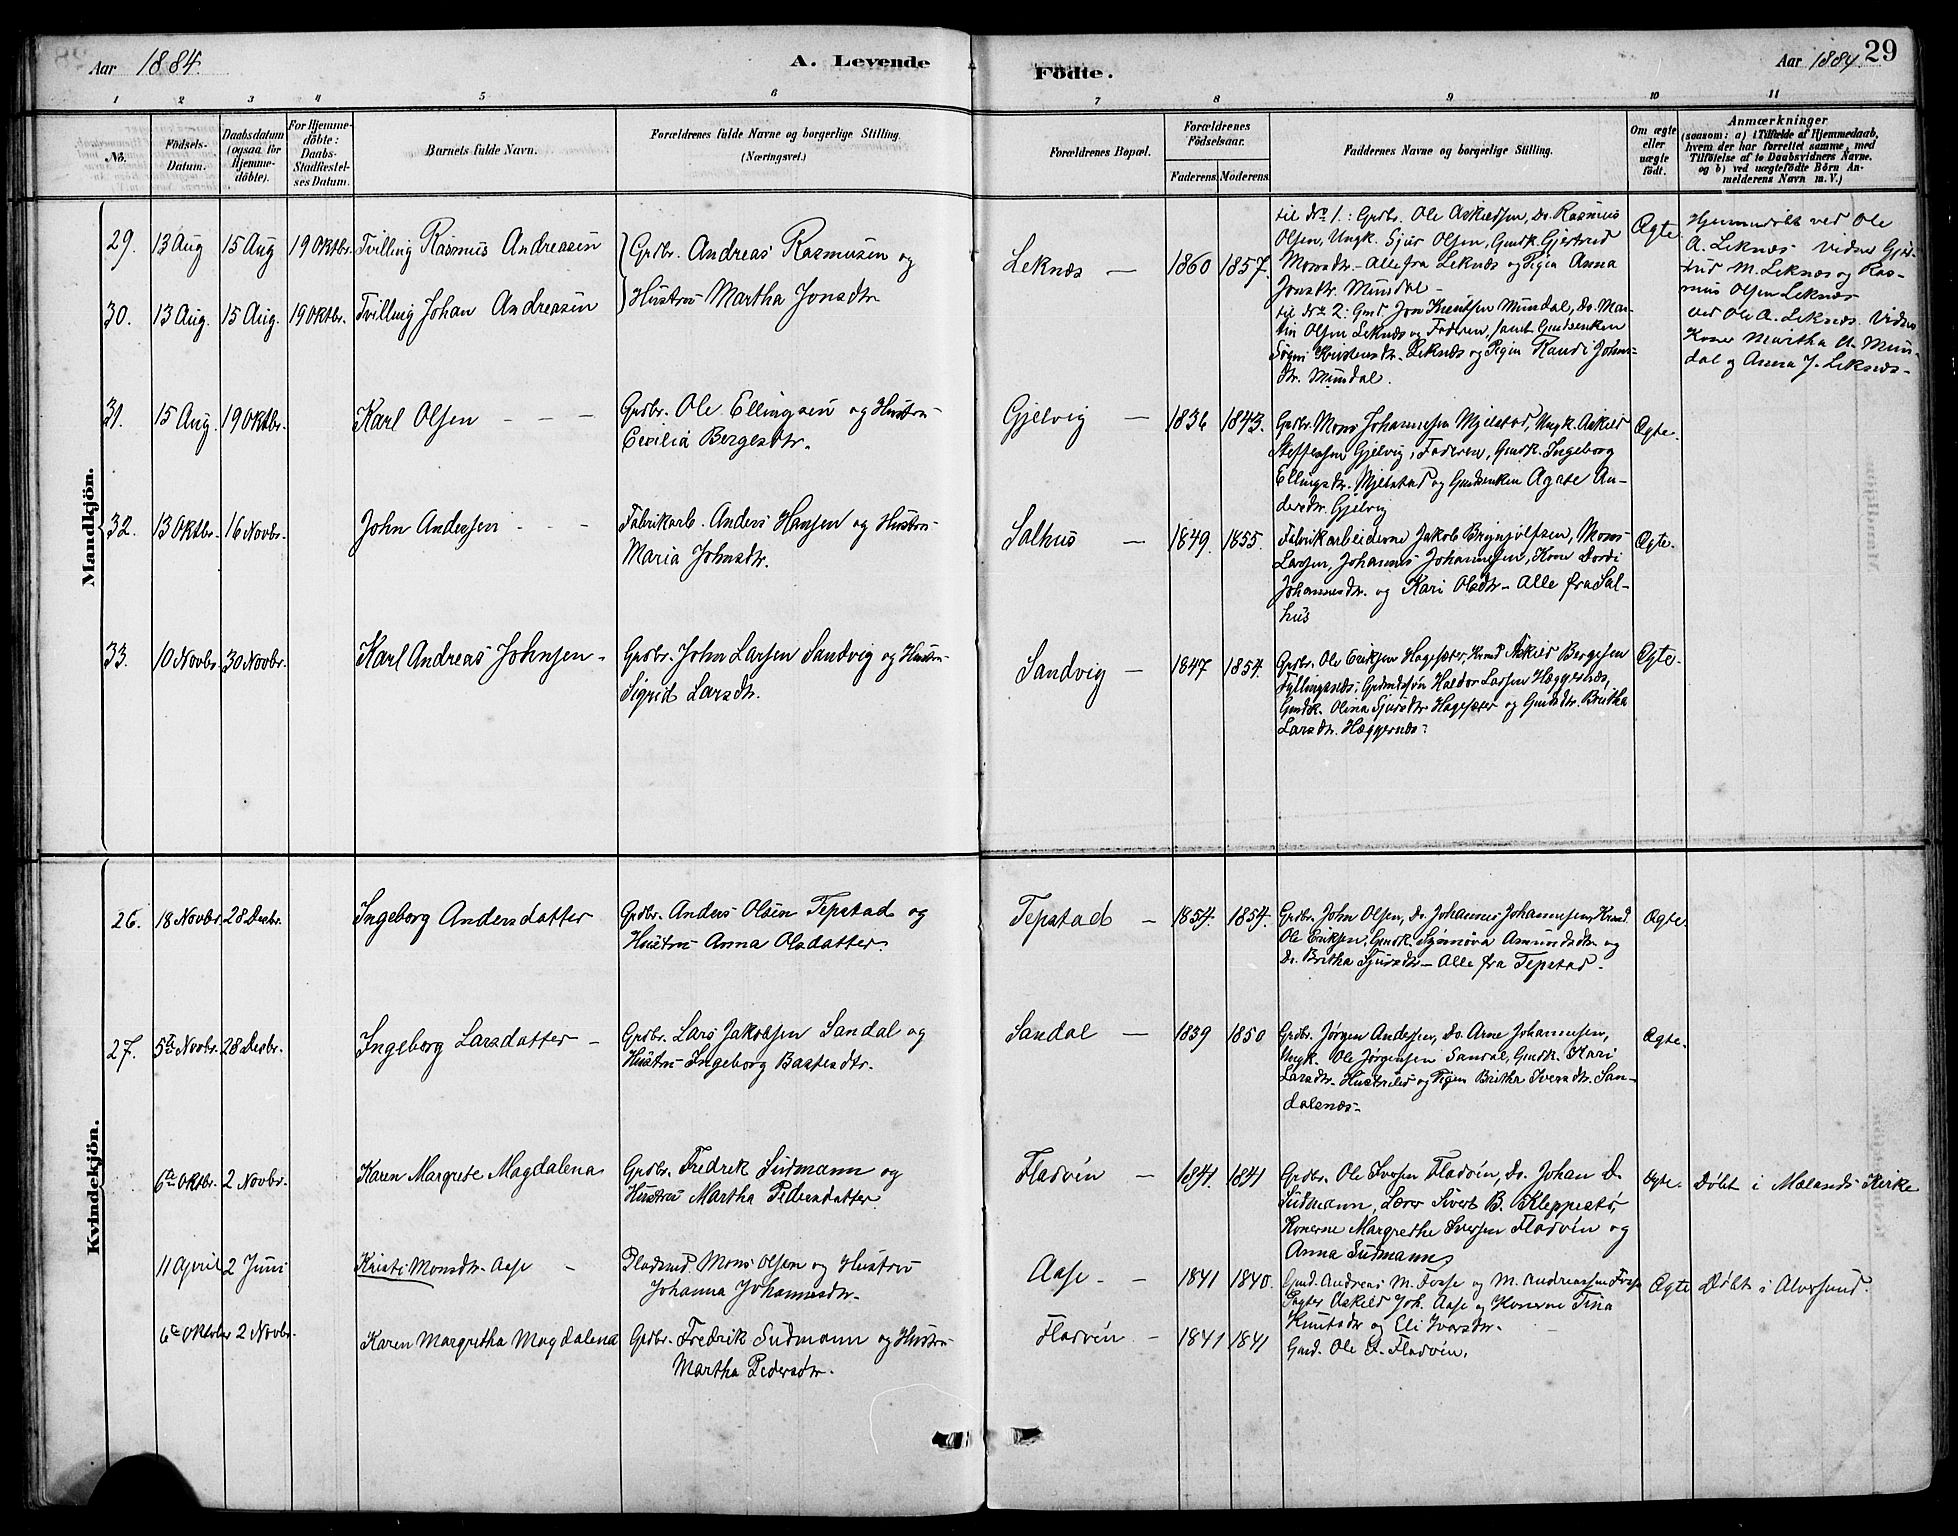 Aar 1884.
A. Levende
Födte.
Aar 1884.
29
1 2 3 4 5 6 7 8 9 10 11
No.
Födsels-
Datum.
Daabsdatum
(ogsaa for
Hjemme-
döbte).
For Hjemme-
döbte:
Daabs-
Stadfæstel-
ses Datum.
Barnets fulde Navn.
Forældrenes fulde Navne og borgerlige Stilling.
(Næringsvei.)
Forældrenes Bopæl.
Forældrenes
Födselsaar.
Faderens. Moderens.
Faddernes Navne og borgerlige Stilling.
Om ægte
eller
uægte
födt.
Anmærkninger
(saasom: a) i Tilfælde af Hjemmedaab,
hvem der har forrettet samme, med
Tilföielse af to Daabsvidners Navne.
og b) ved uægtefödte Börn An-
melderens Navn m. V.)
Mandkjön.
29. 13 Aug 15 Aug 19 Oktbr. Tvilling Rasmus Andreasen
Grdbr. Andreas Rasmusen og
Hustru Martha Jonsdtr.
Leknæs — 1860 1857.
til No 1.: Grdbr. Ole Askildsen, Do. Rasmus
Olsen, Ungk. Sjur Olsen, Gmdk. Gjertrud
Monsdtr. Alle fra Leknæs og Pigen Anna
Jonsdtr. Mundal –
Ægte.
Hjemmedöbt ved Ole
A. Leknæs. Vidner Gjer-
trud M. Leknæs og Ras-
mus Olsen Leknæs
30. 13 Aug. 15 Aug. 19 Oktbr. Tvilling Johan Andreasen
til No 2: Gmd. Jon Knutsen Mundal, Do. Mar-
tin Olsen Leknæs og Faderen, samt Gmdsenken
Sögni Knutsdtr. Leknæs og Pigen Randi Johns-
dtr. Mundal.
ved Ole A. Leknæs. Vidner
Kone Martha A. Mun-
dal og Anna J. Leknæs-
31. 15 Aug. 19 Oktbr. Karl Olsen – – –
Grdbr. Ole Ellingsen og Hustru
Cecilia Bergesdtr.
Gjelvig — 1836 1843.
Grdbr. Mons Johannesen Mjelstad, Ungk. Askild
Steffensen Gjelvig, Faderen, Gmdk. Ingeborg
Ellingsdtr. Mjelstad og Gmdsenken Agate An-
dersdtr. Gjelvig
Ægte.
32. 13 Oktbr. 16 Novbr. John Andersen – – –
Fabrikarb. Anders Hansen og Hustru
Maria Johnsdtr.
Salhus — 1849. 1855.
Fabrikarbeiderne Jakob Brynjulfsen, Mons
Larsen, Johannes Johannesen, Kone Dordi
Johannesdtr. og Kari Olsdtr. – Alle fra Sal-
hus
Ægte.
33. 10 Novbr. 30 Novbr. Karl Andreas Johnsen –
Grdbr. John Larsen Sandvig og Hustru
Sigrid Larsdtr.
Sandvig — 1847 1854.
Grdbr. Ole Eriksen Hagesæter, Kmd. Askild Bergesen
Fyllingsnæs, Grdmdsön Haldor Larsen Hæggernæs,
Gmdk. Olina Sjursdtr. Hagesæter og Gmdsdtr. Britha
Larsdtr. Hæggernæs.
Ægte.
Kvindekjön.
26. 18 Novbr. 28 Desbr. Ingeborg Andersdatter
Grdbr. Anders Olsen Tepstad og
Hustru Anna Olsdatter.
Tepstad — 1854. 1854.
Grdbr. John Olsen, Do. Johannes Johannesen, Kmd.
Ole Eriksen, Gmdk. Synnöva Amundsdtr. og
Do. Britha Sjursdtr. – Alle fra Tepstad.
Ægte.
27. 5te Novbr. 28 Desbr. Ingeborg Larsdatter –
Grdbr. Lars Jakobsen Sandal og
Hustru Ingeborg Baatesdtr.
Sandal — 1839 1850
Grdbr. Jörgen Andersen, Do. Arne Johannesen,
Ungk. Ole Jörgensen Sandal, Gmdk. Kari
Larsdtr. Hustveded og Pigen Britha Iversdtr. San-
dalsnæs.
Ægte.
6te Oktbr. 2 Novbr. Karen Margrete Magdalena
Grdbr. Fredrik Sudmann og
Hustru Martha Pedersdatter.
Fladvin — 1841. 1841
Grdbr. Ole Iversen Fladvin, Do. Johan D.
Sudmann, Lærer Sivert B. Kleppestö,
Konerne Margrethe Iversen Fladvin og
Anna Sudmann
Ægte.
Döbt i Mælands Kirke
11 April 2 Juni Kristi Monsdtr. Aase –
Pladsmd Mons Olsen og Hustru
Johanna Johannesdtr.
Aase. — 1841 1840.
Gmd. Andreas M. Fosse og M. Andreassen Fosse
Skytter Askild Joh. Aase og Konerne Tina
Knutsdtr og Eli Iversdtr.
Ægte
Döbt i Alversund.
6te Oktober 2 Novbr. Karen Margretha Magdalena
Grdbr. Fredrik Sudmann og Hustru
Martha Pedersdtr.
Fladvin – 1841 1841
Gmd. Ole I. Fladvin.